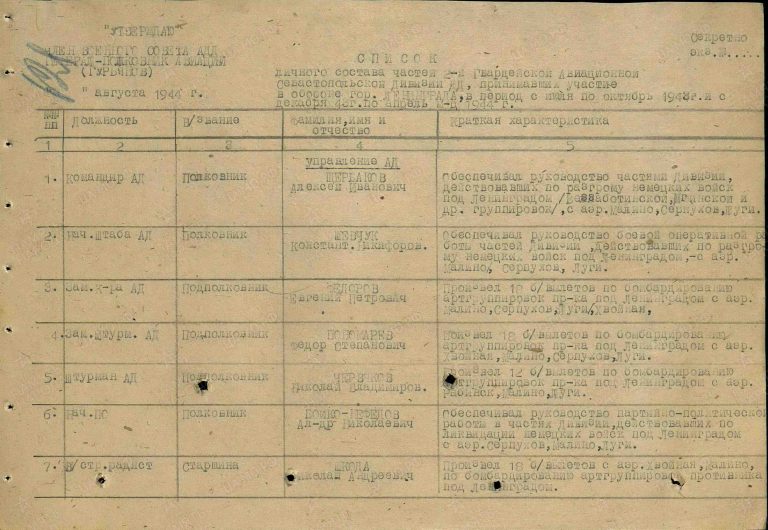 "УТВЕРЖДАЮ"
ЧЛЕН ВОЕННОГО СОВЕТА АДД
ГЕНЕРАЛ-ПОЛКОВНИК АВИАЦИИ
(ГУРЬЯНОВ)
" августа 1944 г.
Секретно
экз.№.....
СПИСОК
личного состава частей 2-й Гвардейской Авиационной
Севастопольской Дивизии АД, принимавших участие
в обороне гор. ЛЕНИНГРАДА, в период с июня по октябрь 1943г. и с
декабря 43г. по апрель м-ц 1944 г.
№№ Должность В/звание Фамилия, имя и Краткая характеристика
пп отчество
1 2 3 4 5
управление АД
1. Командир АД Полковник ЩЕРБАКОВ Обеспечивал руководство частями Дивизии,
Алексей Иванович действовавших по разгрому немецких войск
под Ленинградом /Беззаботинской, Мгинской и
др. группировок/, с аэр. Малино, Серпухов, Луги.
2. Нач. Штаба АД Полковник ШЕВЧУК Обеспечивал руководство боевой оперативной ра
Констант. Никифоров. боты частей Дивизии действовавших по разгро-
му немецких войск под Ленинградом,-с аэр.
Малино, Серпухов, Луги.
3. Зам. К-ра АД Подполковник ФЕДОРОВ Произвел 18 б/вылетов по бомбардированию
Евгений Петрович артгруппировок пр-ка под Ленинградом с аэр.
Малино, Серпухов, Луги, Хвойная,
4. Зам. Штурм. АД Подполковник ПОНОМАРЕВ Произвел 18 б/вылетов по бомбардированию
Федор Степанович артгруппировок пр-ка под Ленинградом с аэр.
Хвойная, Малино, Серпухов, Луги.
5. Штурман АД Подполковник ЧЕРВЯКОВ Произвел 12 б/вылетов по бомбардированию
Николай Владимиров. артгруппировок пр-ка под Ленинградом с аэр.
Малино, Луги.
6. Нач. ПО Полковник БОЙКО-НЕФЕДОВ Обеспечивал руководство партийно-политической
Ал-др Николаевич работы в частях Дивизии, действовавших по
ликвидации немецких войск под Ленинградом
с аэр. Серпухов, Малино, Луги.
7. В/стр. радист Старшина ШКОДА Произвел 18 б/вылетов с аэр. Хвойная, Малино,
Николай Андреевич по бомбардированию артгруппировок противника
под Ленинградом.